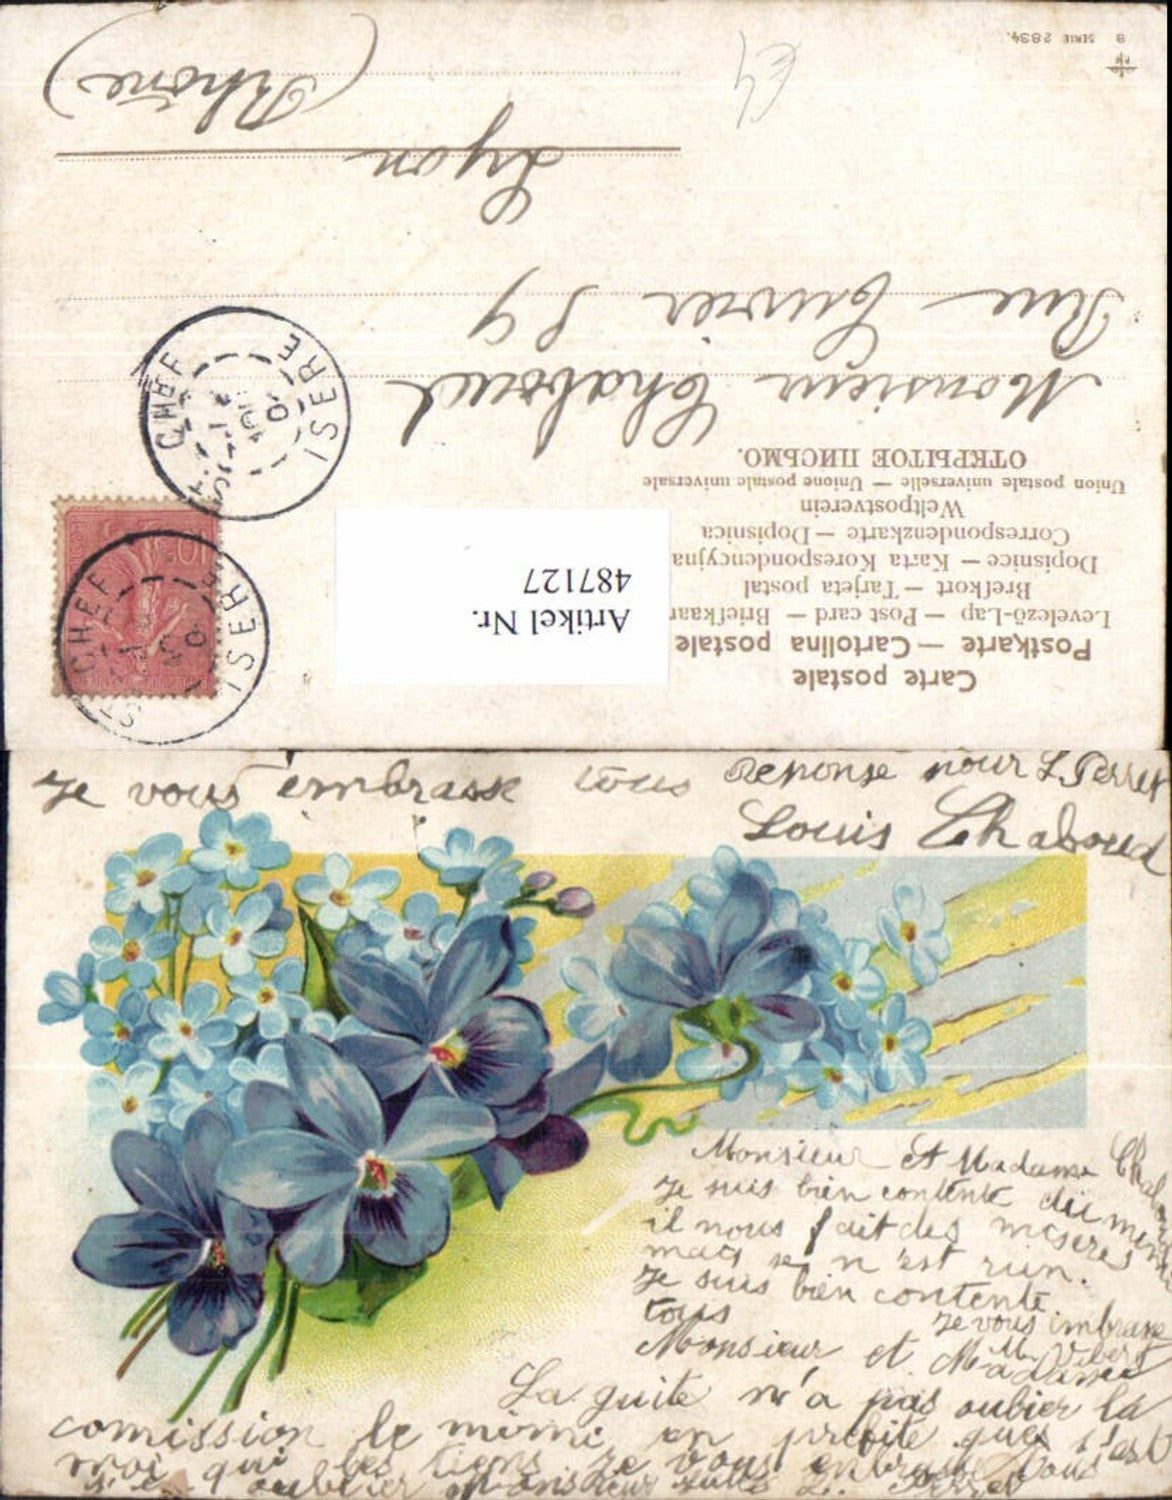 Carte postale
Postkarte — Cartolina postale
Levelező-Lap — Post card — Briefkaart
Brefkort — Tarjeta postal
Dopisnice — Karta Korespondencyjna
Correspondenzkarte — Dopisnica
Weltpostverein
Union postale universelle — Unione postale universale
ОТКРЫТОЕ ПИСЬМО.
Artikel Nr.
487127
ST. CHEF
ISERE
ST. CHEF
ISERE
10
Monsieur Chaboud
Rue Cuvier 54
Lyon
(Rhône)
8 SERIE 2834.
Je vous embrasse tous Reponse pour L. Perret
Louis Chaboud
Monsieur et Madame
Je suis bien contente du
il nous fait des miseres
mais se n'est rien.
Je suis bien contente.
tous Je vous imbrase
Monsieur et Madame
La guite m'a pas oublier la
comission le mimi en profite
moi qui je vous enbrasse tous
oublier Monsieur L. Perret